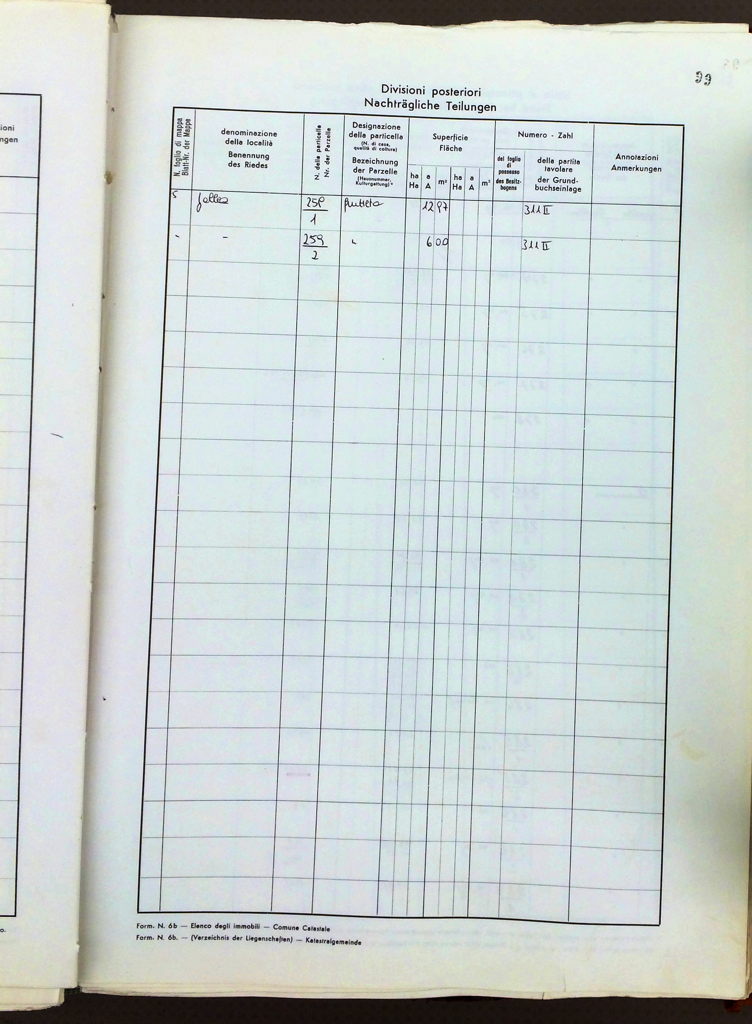 99
Divisioni posteriori
Nachträgliche Teilungen
N. foglio di mappa
Blatt-Nr. der Mappe
denominazione
della località
Benennung
des Riedes
N. della particella
Nr. der Parzelle
Designazione
della particella
(N. di casa,
qualità di coltura)
Bezeichnung
der Parzelle
(Hausnummer,
Kulturgattung)
Superficie
Fläche
ha
Ha
a
A
m²
ha
Ha
a
A
m²
Numero - Zahl
del foglio
di
possesso
des Besitz-
bogens
della partita
tavolare
der Grund-
buchseinlage
Annotazioni
Anmerkungen
5 259 12 97 311 II
1
" - 259 " 6 00 311 II
2
Form. N. 6b — Elenco degli immobili — Comune Catastale
Form. N. 6b. — (Verzeichnis der Liegenschaften) — Katastralgemeinde
ioni
ngen
o.